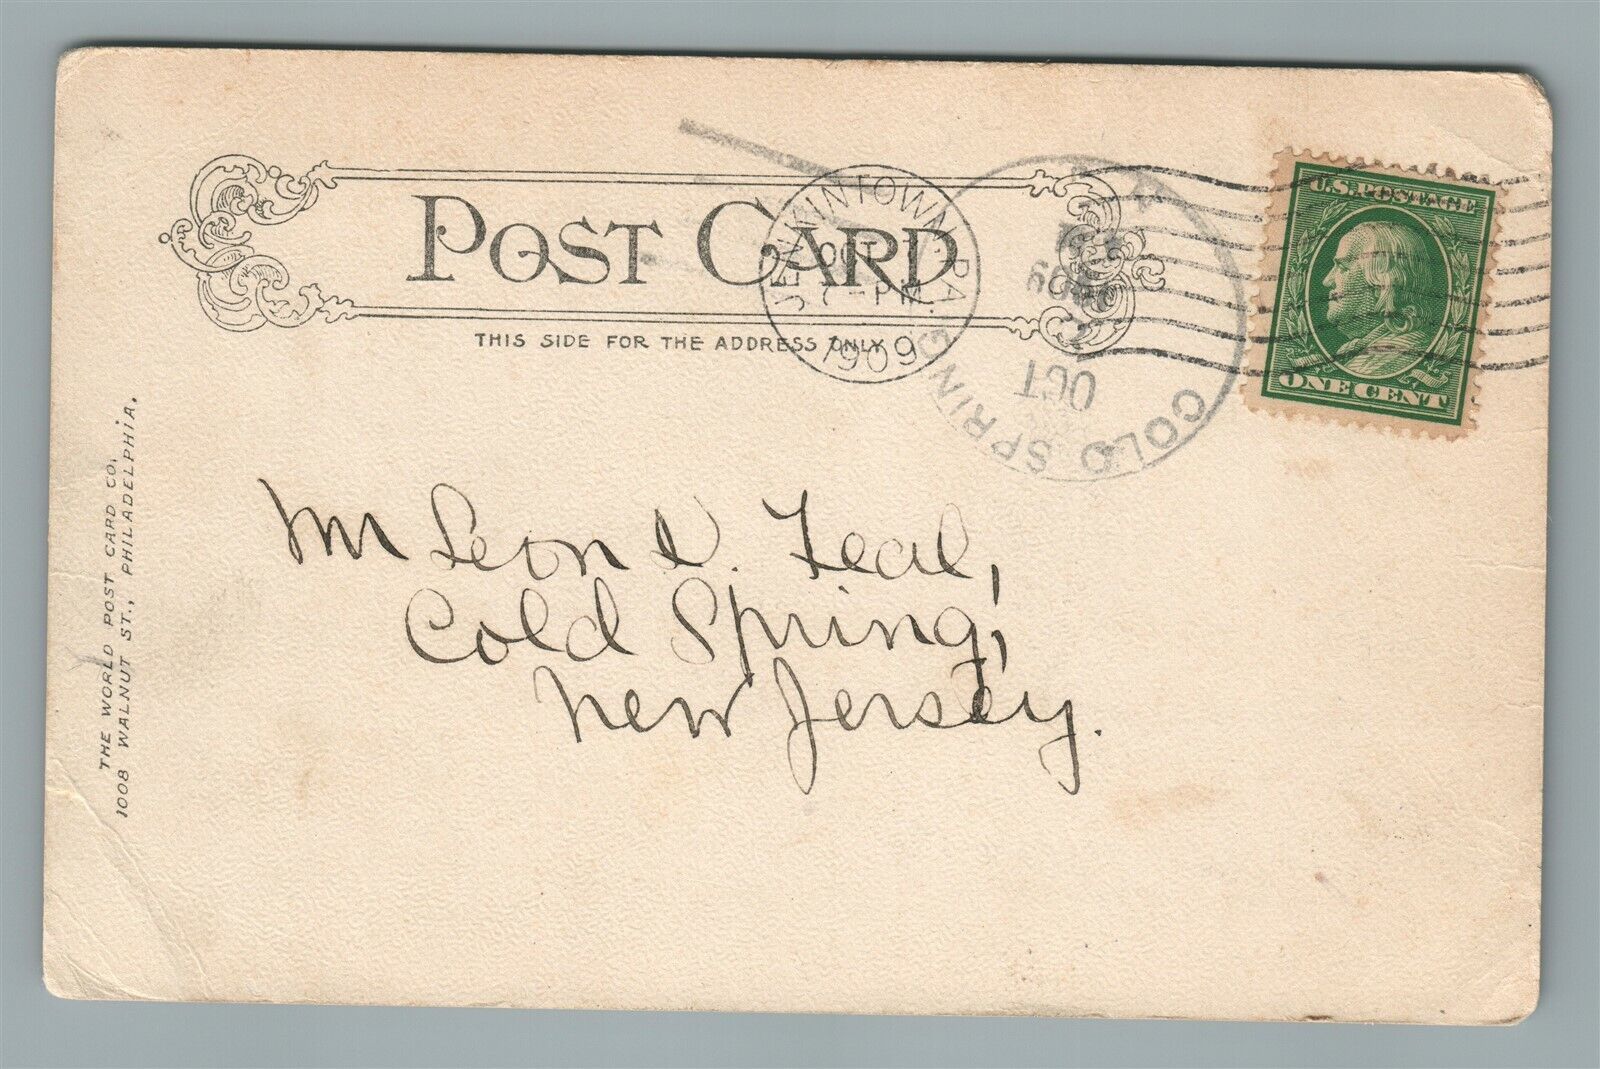 POST CARD
THIS SIDE FOR THE ADDRESS ONLY
JENKINTOWN, PA.
OCT 7
7-PM
1909
COLD SPRING
OCT
1909
U.S. POSTAGE
ONE CENT
Mr Leon D. Teal,
Cold Spring,
New Jersey.
THE WORLD POST CARD CO,
1008 WALNUT ST., PHILADELPHIA.